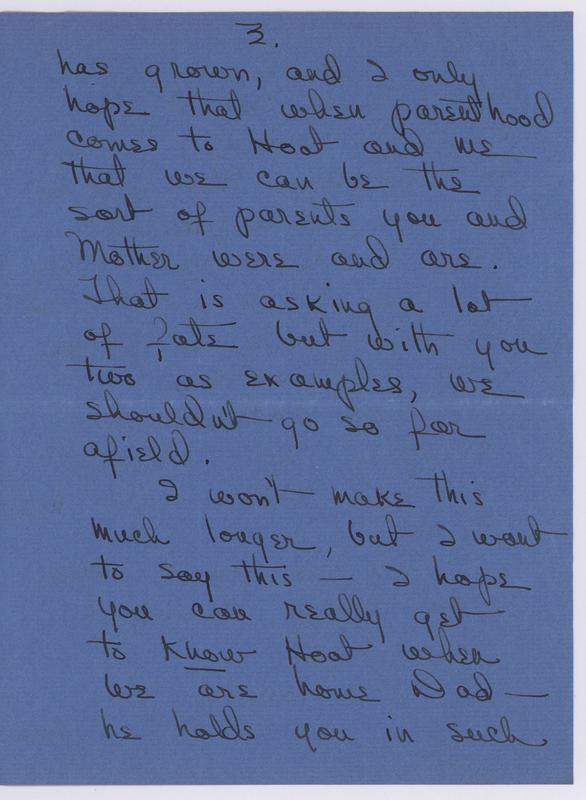 3.
has grown, and I only
hope that when parenthood
comes to Hoot and me
that we can be the
sort of parents you and
Mother were and are.
That is asking a lot
of Fate but with you
two as examples, we
shouldn't go so far
afield.
I won't make this
much longer, but I want
to say this — I hope
you can really get
to know Hoot when
we are home Dad —
he holds you in such